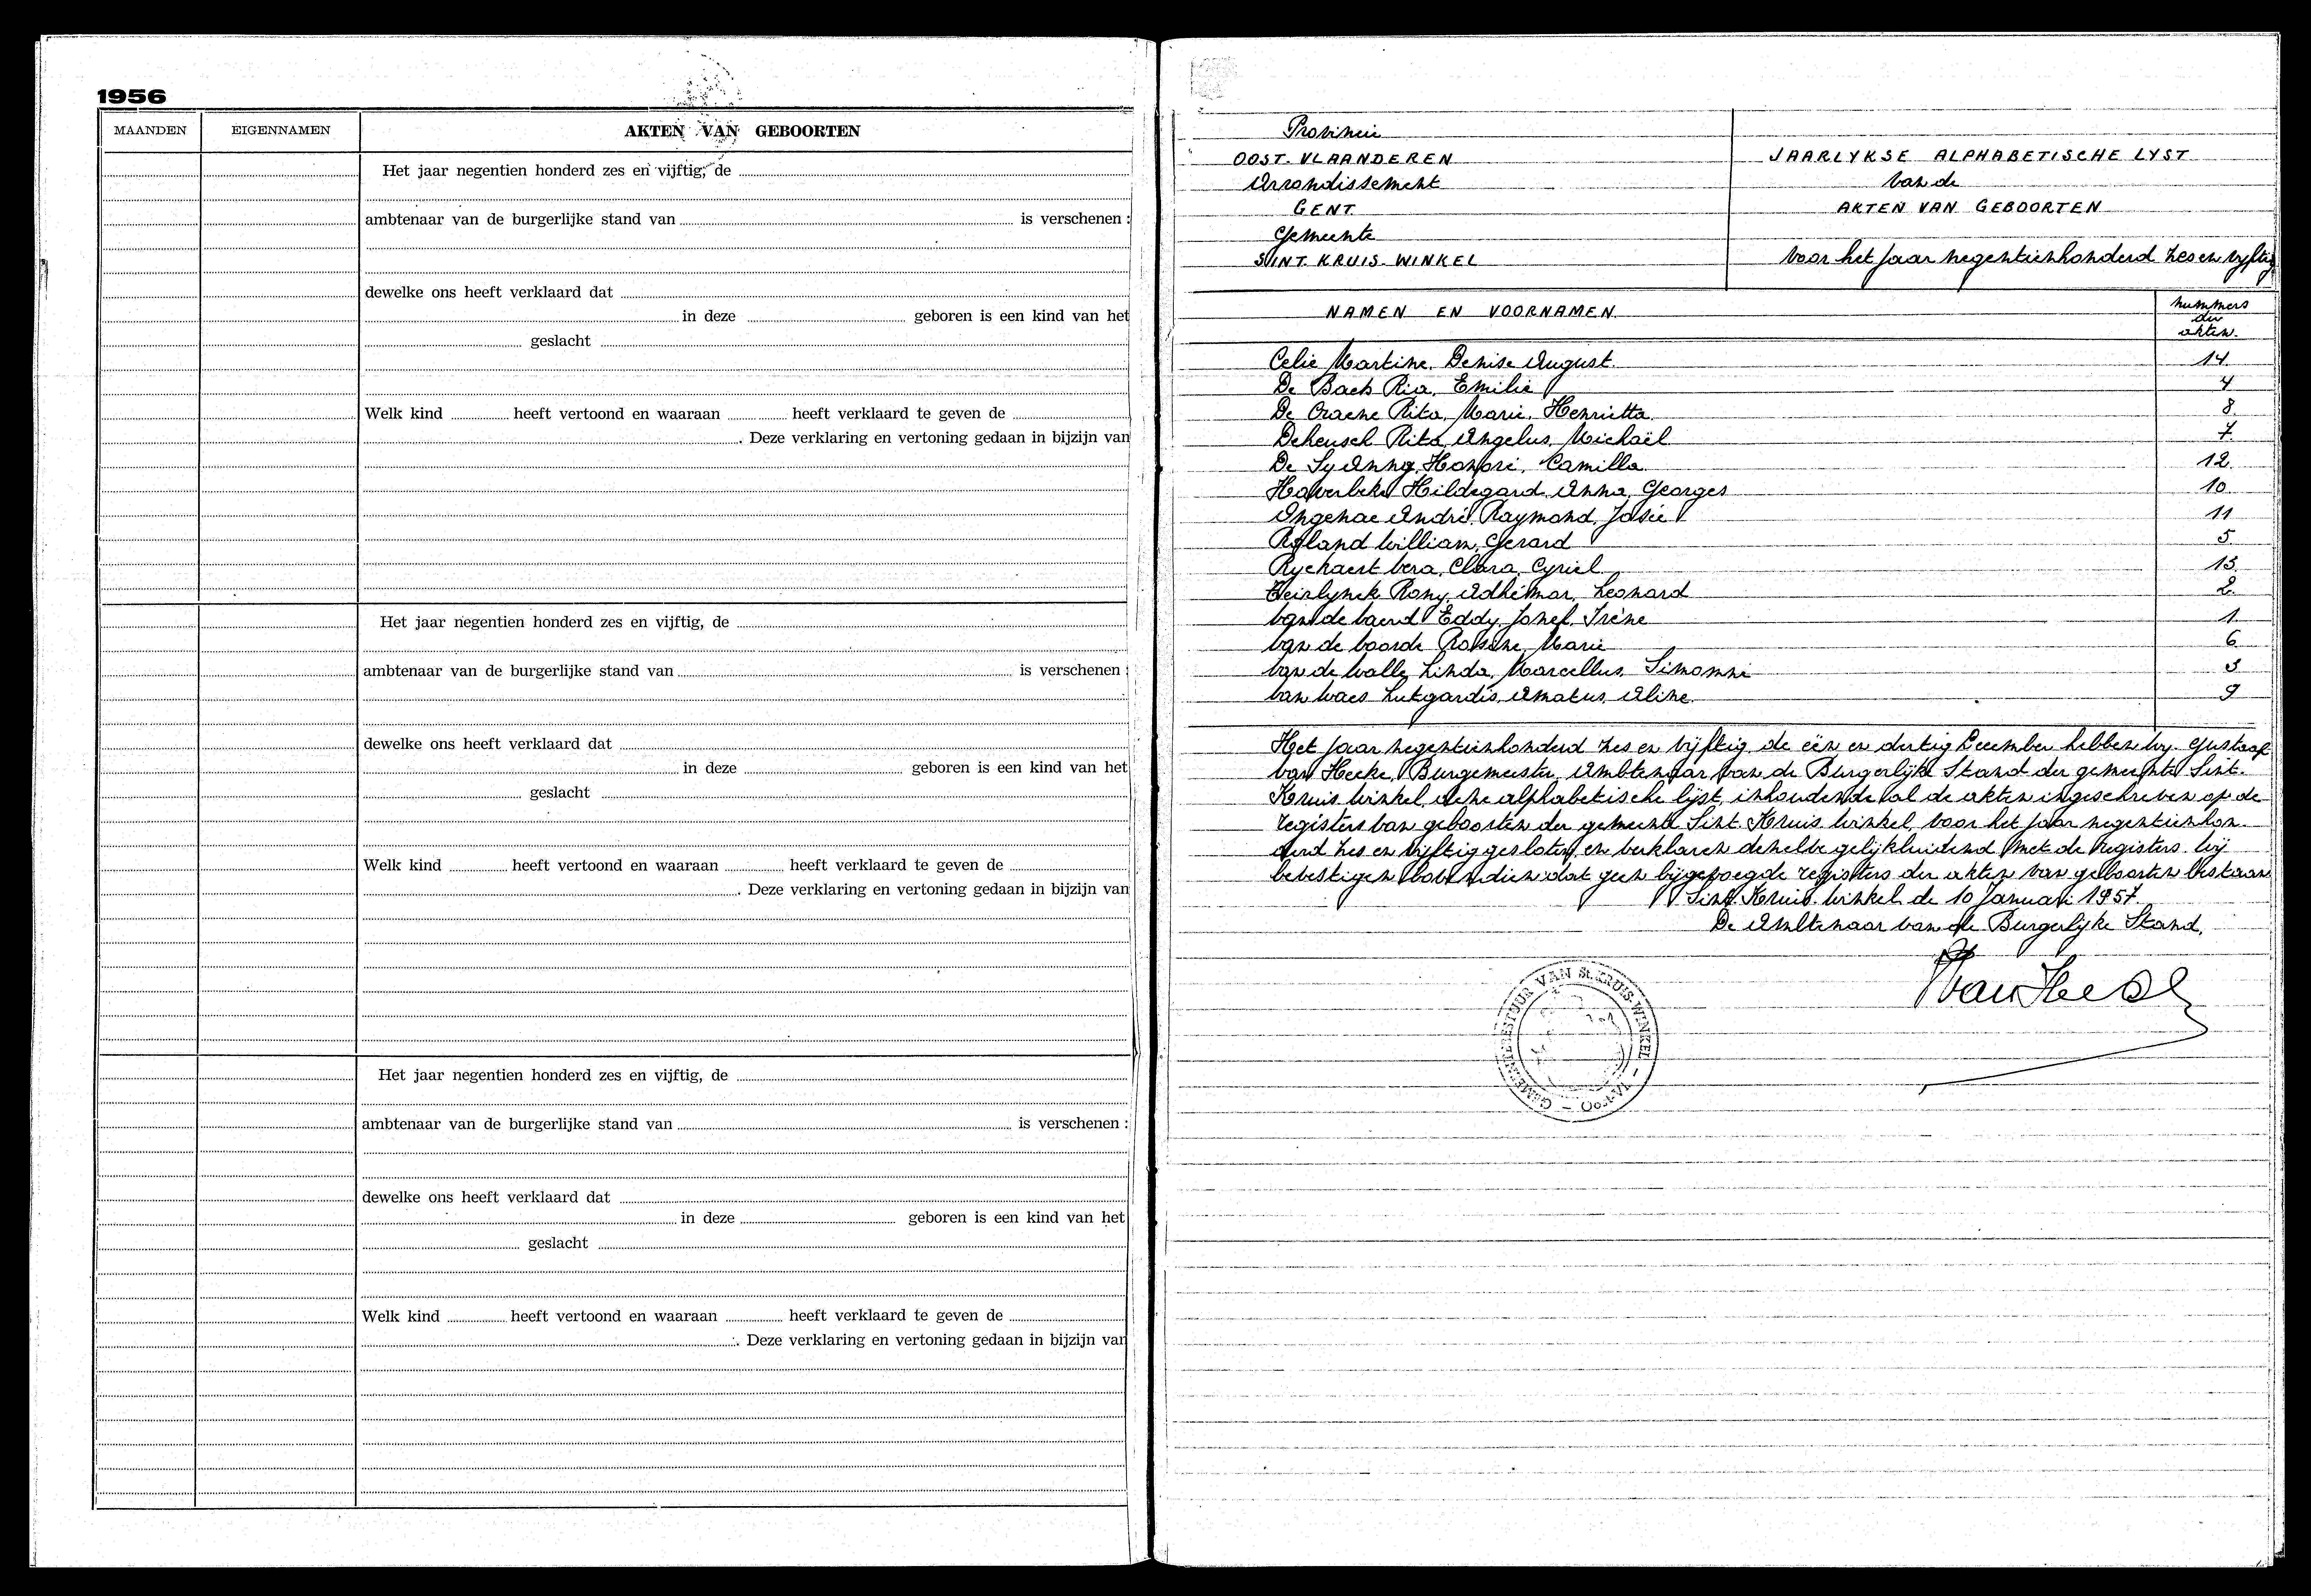 1956
MAANDEN EIGENNAMEN AKTEN VAN GEBOORTEN
Het jaar negentien honderd zes en vijftig, de
ambtenaar van de burgerlijke stand van is verschenen :
dewelke ons heeft verklaard dat
in deze geboren is een kind van het
geslacht
Welk kind heeft vertoond en waaraan heeft verklaard te geven de
. Deze verklaring en vertoning gedaan in bijzijn van
Het jaar negentien honderd zes en vijftig, de
ambtenaar van de burgerlijke stand van is verschenen :
dewelke ons heeft verklaard dat
in deze geboren is een kind van het
geslacht
Welk kind heeft vertoond en waaraan heeft verklaard te geven de
. Deze verklaring en vertoning gedaan in bijzijn van
Het jaar negentien honderd zes en vijftig, de
ambtenaar van de burgerlijke stand van is verschenen :
dewelke ons heeft verklaard dat
in deze geboren is een kind van het
geslacht
Welk kind heeft vertoond en waaraan heeft verklaard te geven de
. Deze verklaring en vertoning gedaan in bijzijn van
Provincie
OOST. VLAANDEREN
Arrondissement
GENT
Gemeente
SINT. KRUIS. WINKEL
JAARLYKSE ALPHABETISCHE LYST
van de
AKTEN VAN GEBOORTEN
voor het jaar negentienhonderd zes en vyftig
NAMEN EN VOORNAMEN nummers der akten.
Celie Martine, Denise August. 14
De Baets Ria, Emilie 4
De Craene Rita, Marie, Henrietta 8
Deheusch Rita, Angelus, Michaël 7
De Ly Anny, Honoré, Camilla 12
Haverbeke Hildegard, Anna, Georges 10
Ongenae André, Raymond, Josée 11
Roland William, Gerard 5
Ryckaert Vera, Clara, Cyriel 13
Teirlynck Rony, Adhémar, Leonard 2
Van de Eddy, Jozef, Irène 1
Van de Voorde Rosine, Marie 6
Van de Walle Linda, Marcellus, Simonne 3
Van Waes Lutgardis, Amatus, Aline. 9
Het jaar negentienhonderd zes en vijftig, de één en dertig December hebben wy, Gustaaf
Van Hecke, Burgemeester, Ambtenaar van de Burgerlijke Stand der gemeente Sint.
Kruis. Winkel, deze alphabetische lijst, inhoudende al de akten ingeschreven op de
registers van geboorten der gemeente Sint. Kruis. Winkel, voor het jaar negentienhon-
derd zes en vijftig gesloten, en verklaren dezelve gelijkluidend met de registers. Wij
bevestigen bovendien dat geen bijgevoegde registers der akten van geboorten bestaan
Sint. Kruis. Winkel, de 10 Januari 1957.
De Ambtenaar van de Burgerlijke Stand,
Van Hecke
GEMEENTEBESTUUR VAN St. KRUIS-WINKEL - Oost-Vl. -